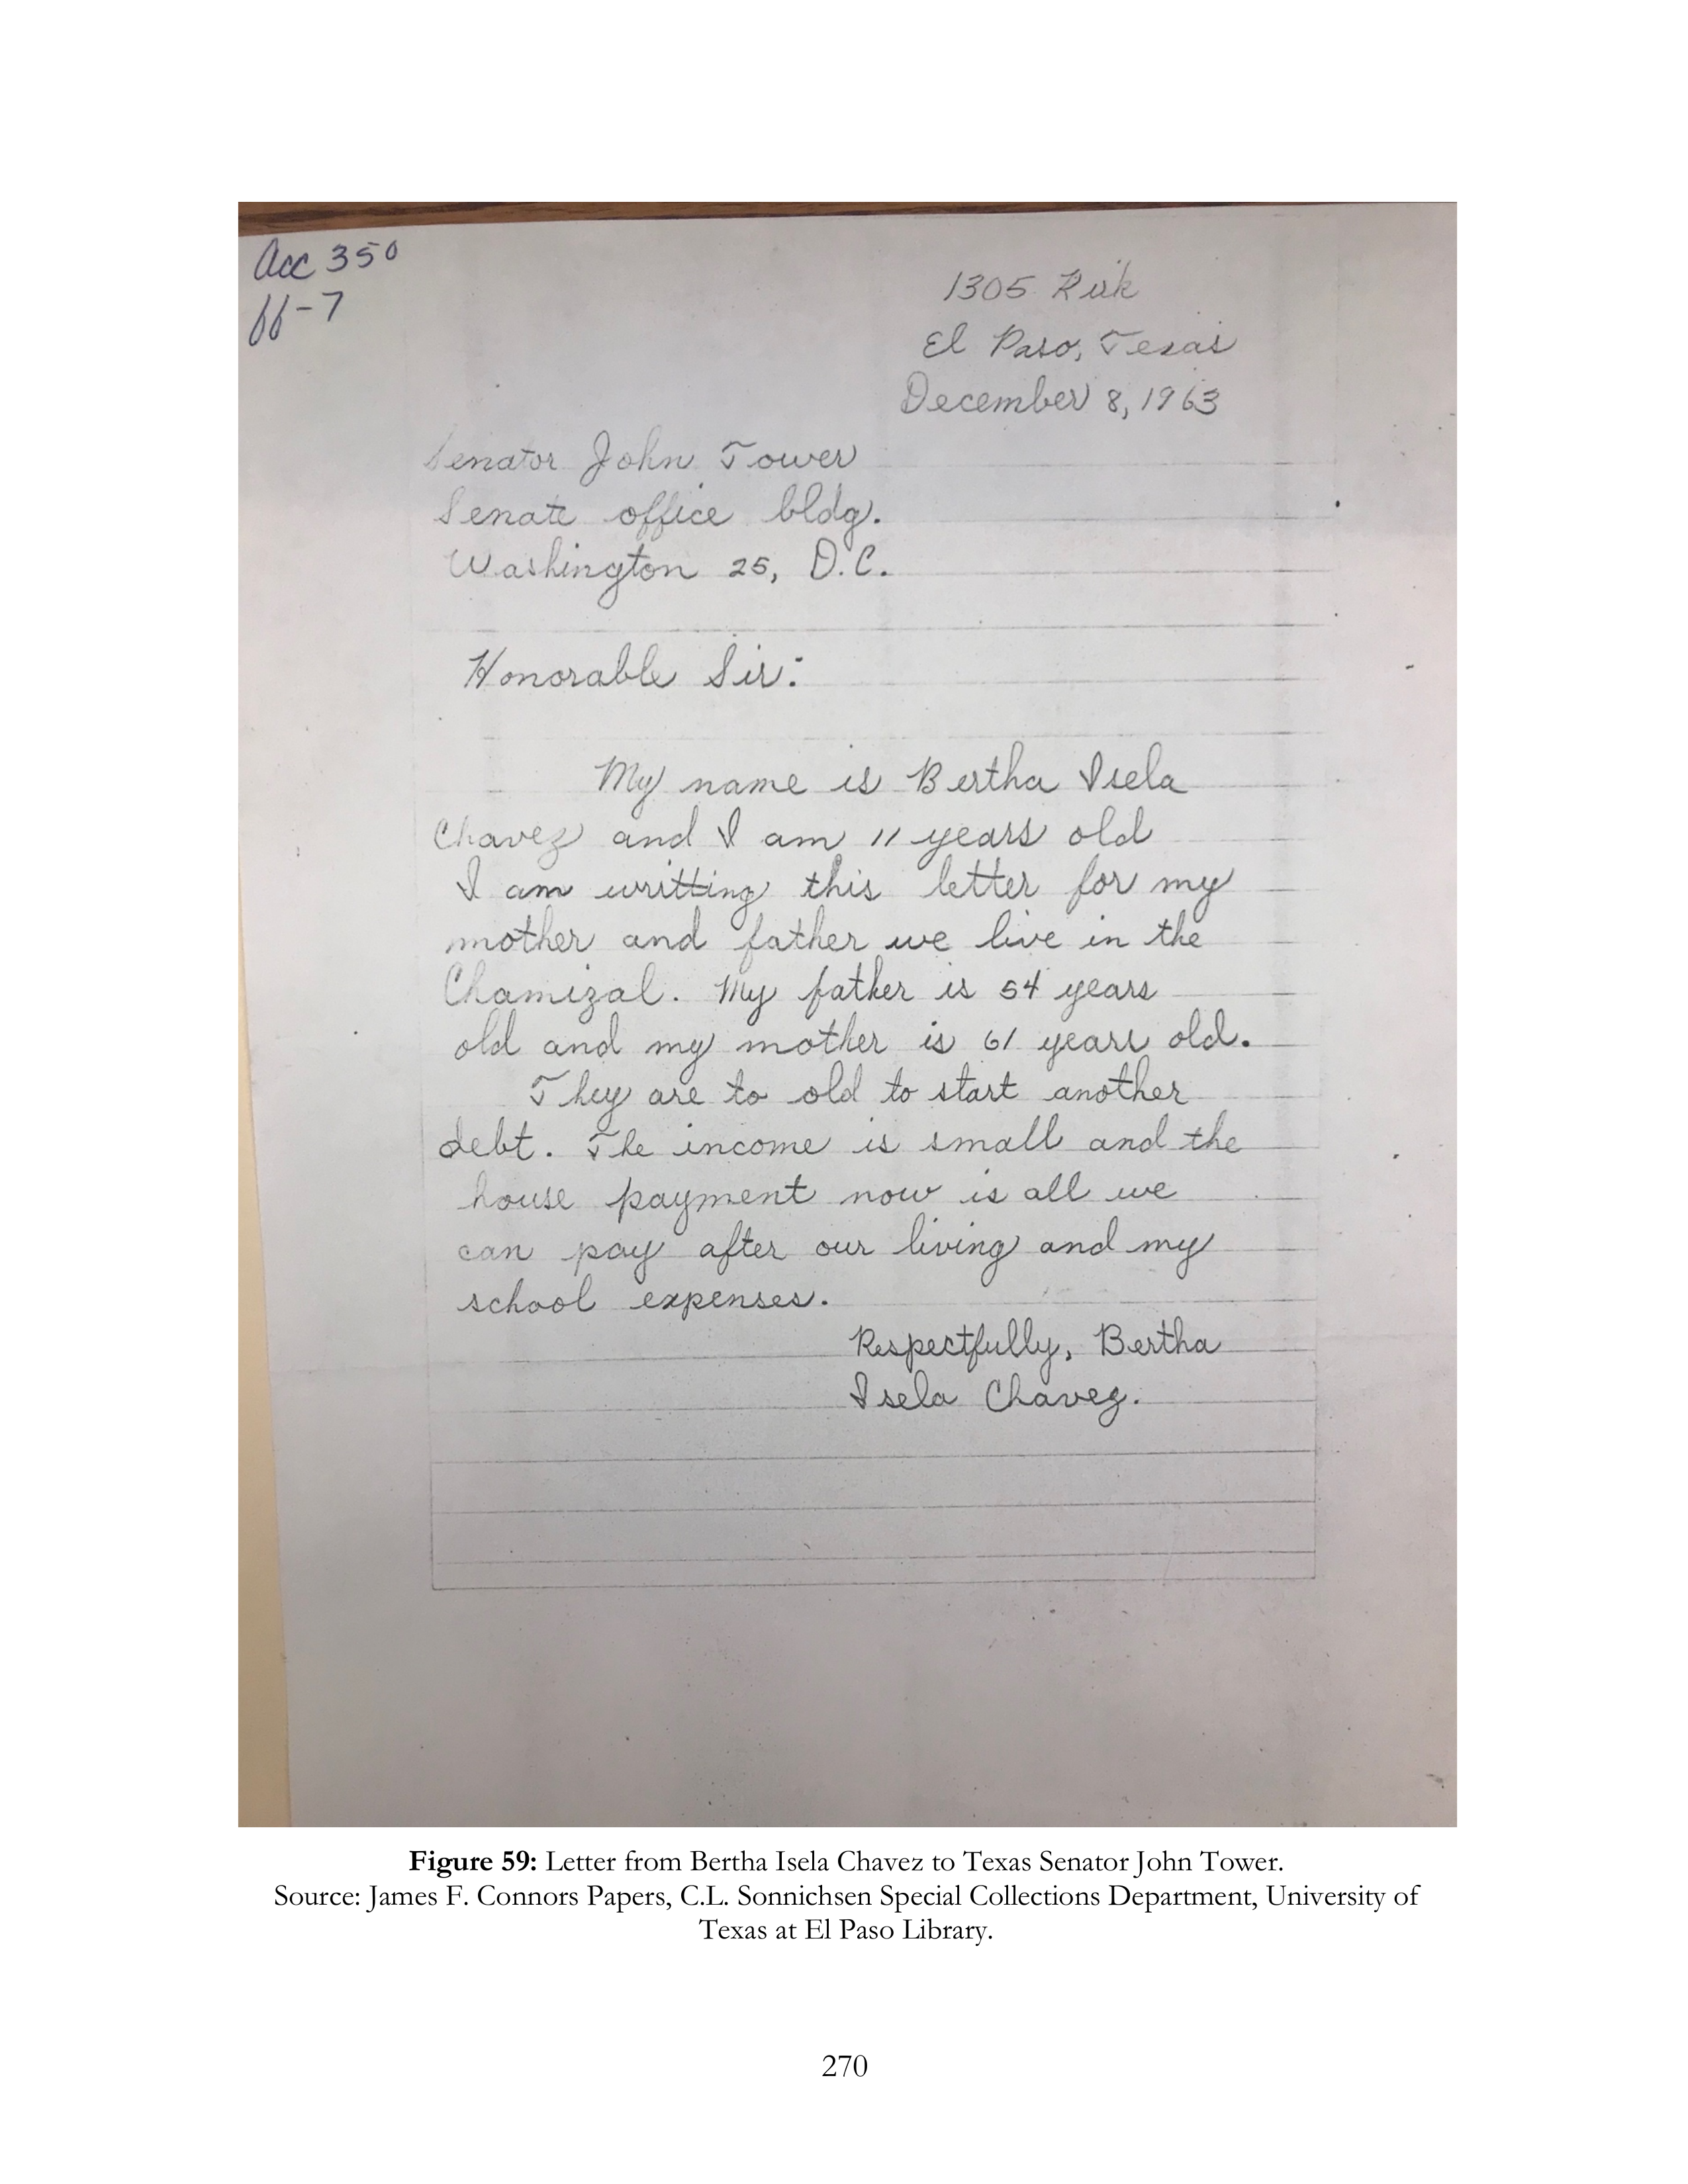 Acc 350
ff-7
1305
El Paso, Texas
December 8, 1963
Senator John Tower
Senate office bldg.
Washington 25, D.C.
Honorable Sir:
My name is Bertha Isela
Chavez and I am 11 years old
I am writting this letter for my
mother and father we live in the
Chamizal. My father is 54 years
old and my mother is 61 years old.
They are to old to start another
debt. The income is small and the
house payment now is all we
can pay after our living and my
school expenses.
Respectfully, Bertha
Isela Chavez.
Figure 59: Letter from Bertha Isela Chavez to Texas Senator John Tower.
Source: James F. Connors Papers, C.L. Sonnichsen Special Collections Department, University of
Texas at El Paso Library.
270